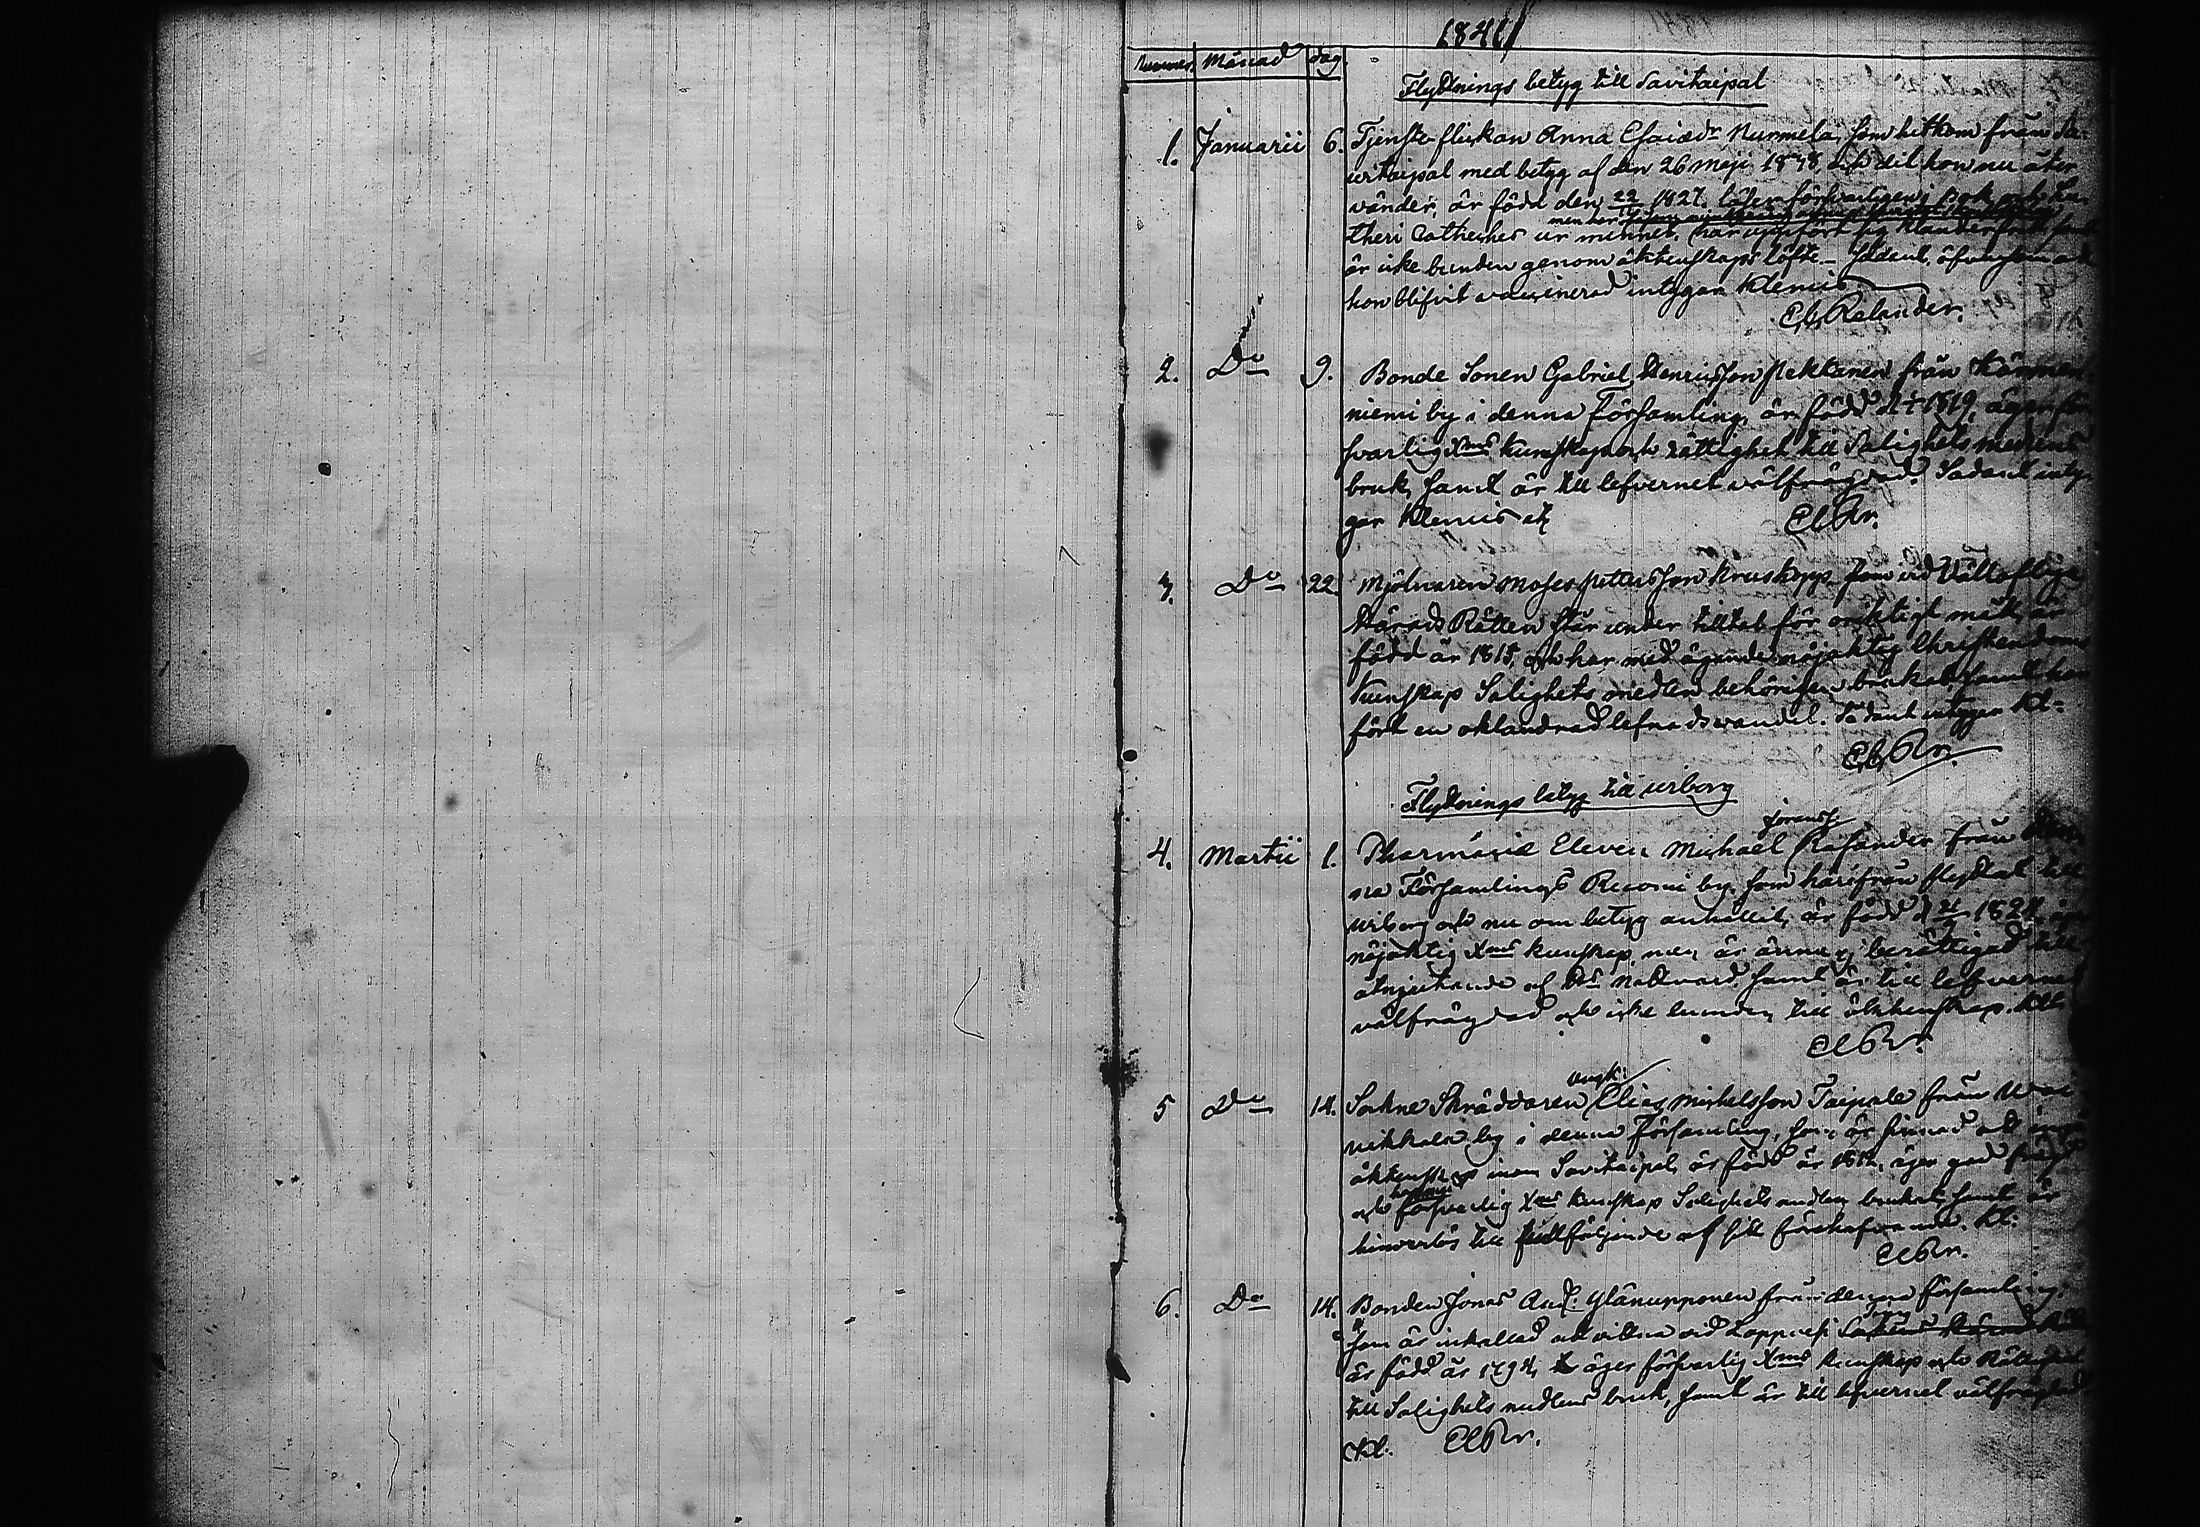 1841
Nummer. Månad dag.
Flyttnings betyg till Savitaipal
1. Januarii 6. Tjenste flickan Anna Esaiædr Nurmela, som hitkom från Sa-
vitaipal med betyg af den 26 Maji och dit hon nu åter
vänder, är född den 1827, läser försvarligen i bok och Lu-
men har
theri Catheches ur minnet,
är icke bunden genom äktenskaps löfte
hon blifvit vaccinerad intygar Klemis
E. C. Relander.
2. Do 9. Bonde Sonen Gabriel Henricsson Pekkanen från Kärman-
niemi by i denna Församling, är född 1819, äger för-
svarlig Xms kunskap och rättighet till Salighets medlens
bruk, samt är till lefvernet välfrägdad. Sådant inty-
gar Klemis
E C Rr.
3. Do 22. Mjölnaren Moses Pettersson Kruskopp som vid Vällofliga
Härads Rätten står under tilltal för oriktigt mått, är
född år 1815, och har med ägande nöjaktig Christendoms
kunskap Salighets medlen behörigen brukat samt har
fört en oklandrad lefnadsvandel. Sådant intygar Kl-
E. C. Rr.
Flyttnings betyg till Wiborg
Joransf
4. Martii 1. Pharmacie Eleven Michael Kasander från
na Församlings by, som härifrån flyttat till
Wiborg och nu om betyg anhållit, är född d 182
nöjaktig Xms kunskap, men är ännu ej berättigad till
åtnjutande af Hs Nattvard samt är till lefvernet
välfrägdad och icke bunden till äktenskap. Kl:
E C Rr.
Ungk:
5 Do 14. Sockne Skräddaren Elias Michelsson Taipale från
nikkala by i denna Församling, som är sinnad att
äktenskap inom Savitaipal, är född år 1812, äger god
och försvarlig Xms kunskap Salighets medlen brukat samt är
hinderlös till fullföljande af sitt förehafvande. Kl:
E C Rr.
6. Do 14. Bonden Jonas And: Ylänupponen från denna församling,
som är inkallad att vittna vid
är född år 1794, äger försvarlig Xms kunskap och Rättighet
till Salighets medlens bruk, samt är till lefvernet välfrägdad
Kl: E C Rr.